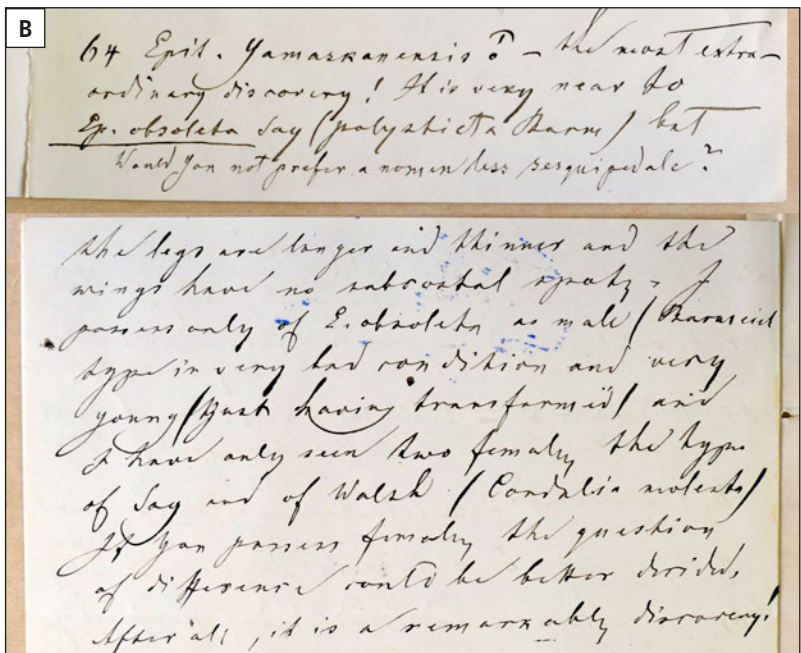 B
64 Epit. Yamaskanensis ♂ – the most extra-
ordinary discovery! It is very near to
Ep. obsoleta Say (polysticta Burm) but
Would you not prefer a nomen less sesquipedale?
the legs are longer and thinner and the
wings have no subcostal spots. I
possess only of E. obsoleta a male (Burmeist
type in very bad condition and very
young (just having transformed) and
I have only seen two females, the type
of Say and of Walsh (Cordulia molesta)
If you possess females the question
of difference could be better decided.
After all, it is a remarkably discovery!